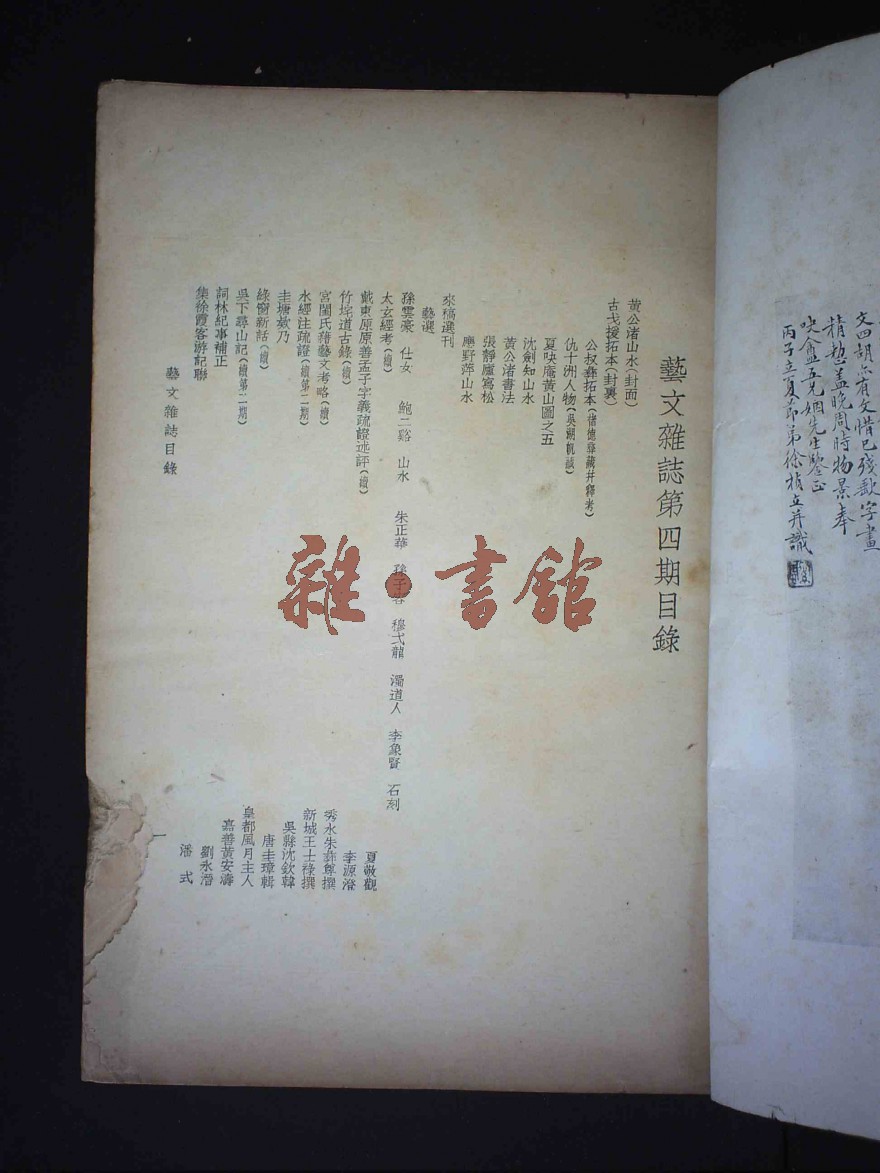 文四胡亦有文惜已殘字畫
精趣蓋晚周時物景奉
吷盦五兄姻先生鑒正
丙子立夏節弟徐楨立并識
藝文雜誌第四期目錄
黃公渚山水(封面)
古戈援拓本(封裏)
公叔彝拓本(褚德彝藏并釋考)
仇十洲人物(吳湖帆藏)
夏吷庵黃山圖之五
沈劍知山水
黃公渚書法
張靜廬寫松
應野萍山水
來稿選刊
藝選
孫雲豪 仕女 鮑二谿 山水 朱正華 孫子容 穆弌龍 濁道人 李象賢 石刻
太玄經考(續) 夏敬觀
戴東原原善孟子字義疏證述評(續) 李源澄
竹垞道古錄(續) 秀水朱彝尊撰
宮閨氏籍藝文考略(續) 新城王士祿撰
水經注疏證(續第二期) 吳縣沈欽韓
圭塘欸乃 唐圭璋輯
綠窗新話(續) 皇都風月主人
吳下尋山記(續第二期) 嘉善黃安濤
詞林紀事補正 劉永濟
集徐霞客游記聯 潘式
藝文雜誌目錄 一
雜·書館